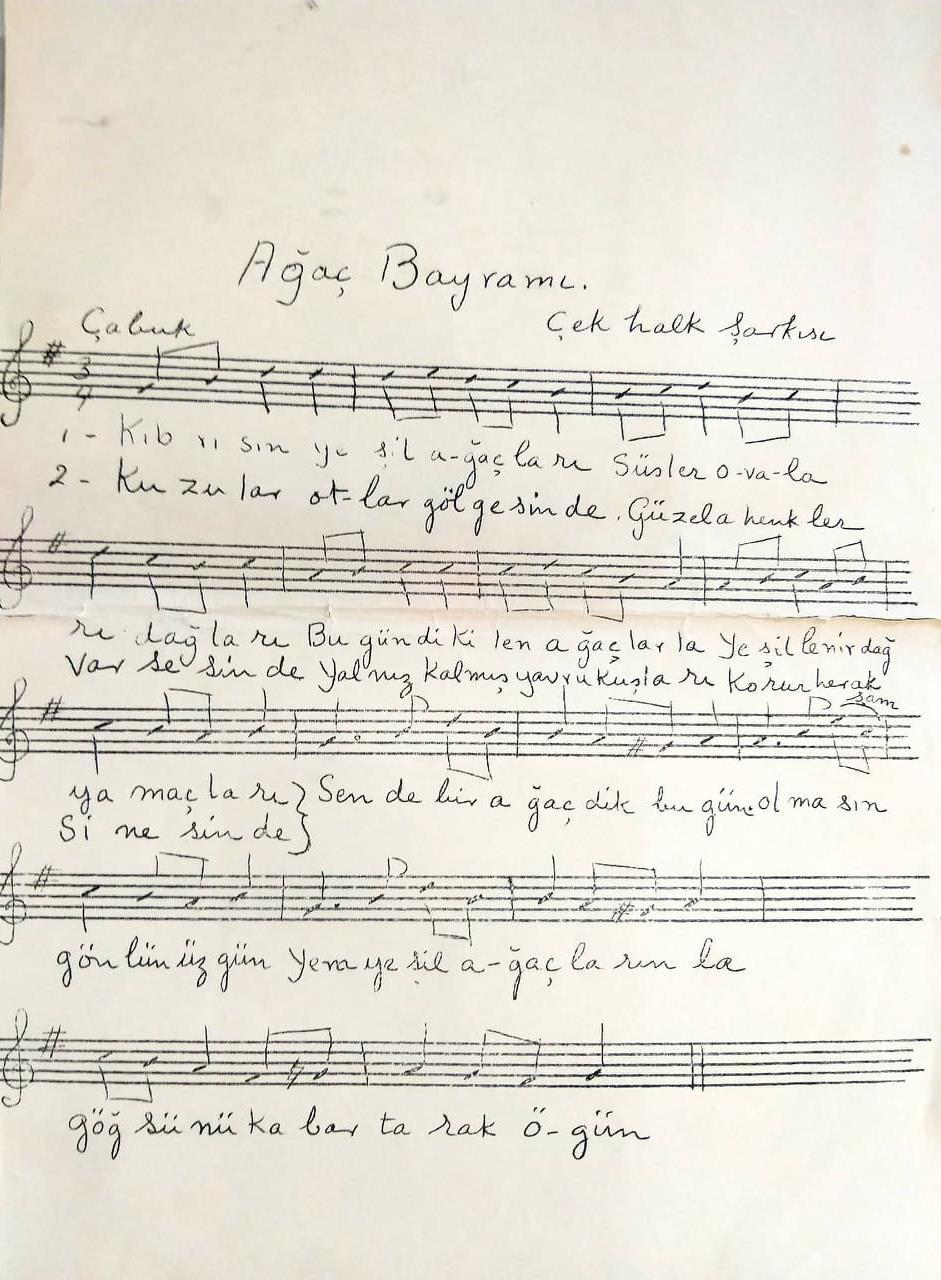 Ağaç Bayramı.
Çabuk
Çek halk Şarkısı
3
4
1- Kıb rı sın ye şil a-ğaç la rı Süsler o-va-la
2- Ku zu lar ot-lar göl ge sin de. Güzel a henk ler
rı dağ la rı Bu gün di ki len a ğaç lar la Ye şil lenir dağ
Var se sin de Yal nız Kalmış yavru kuşla rı Korur her ak
şam
ya maç la rı } Sen de bir a ğaç dik bu gün. ol ma sın
Si ne sin de }
gön lün üz gün Yem ye şil a-ğaç la rın la
göğ sü nü ka bar ta rak ö-gün